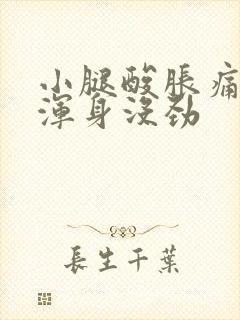 小腿酸脹痛
渾身沒勁
長生千葉